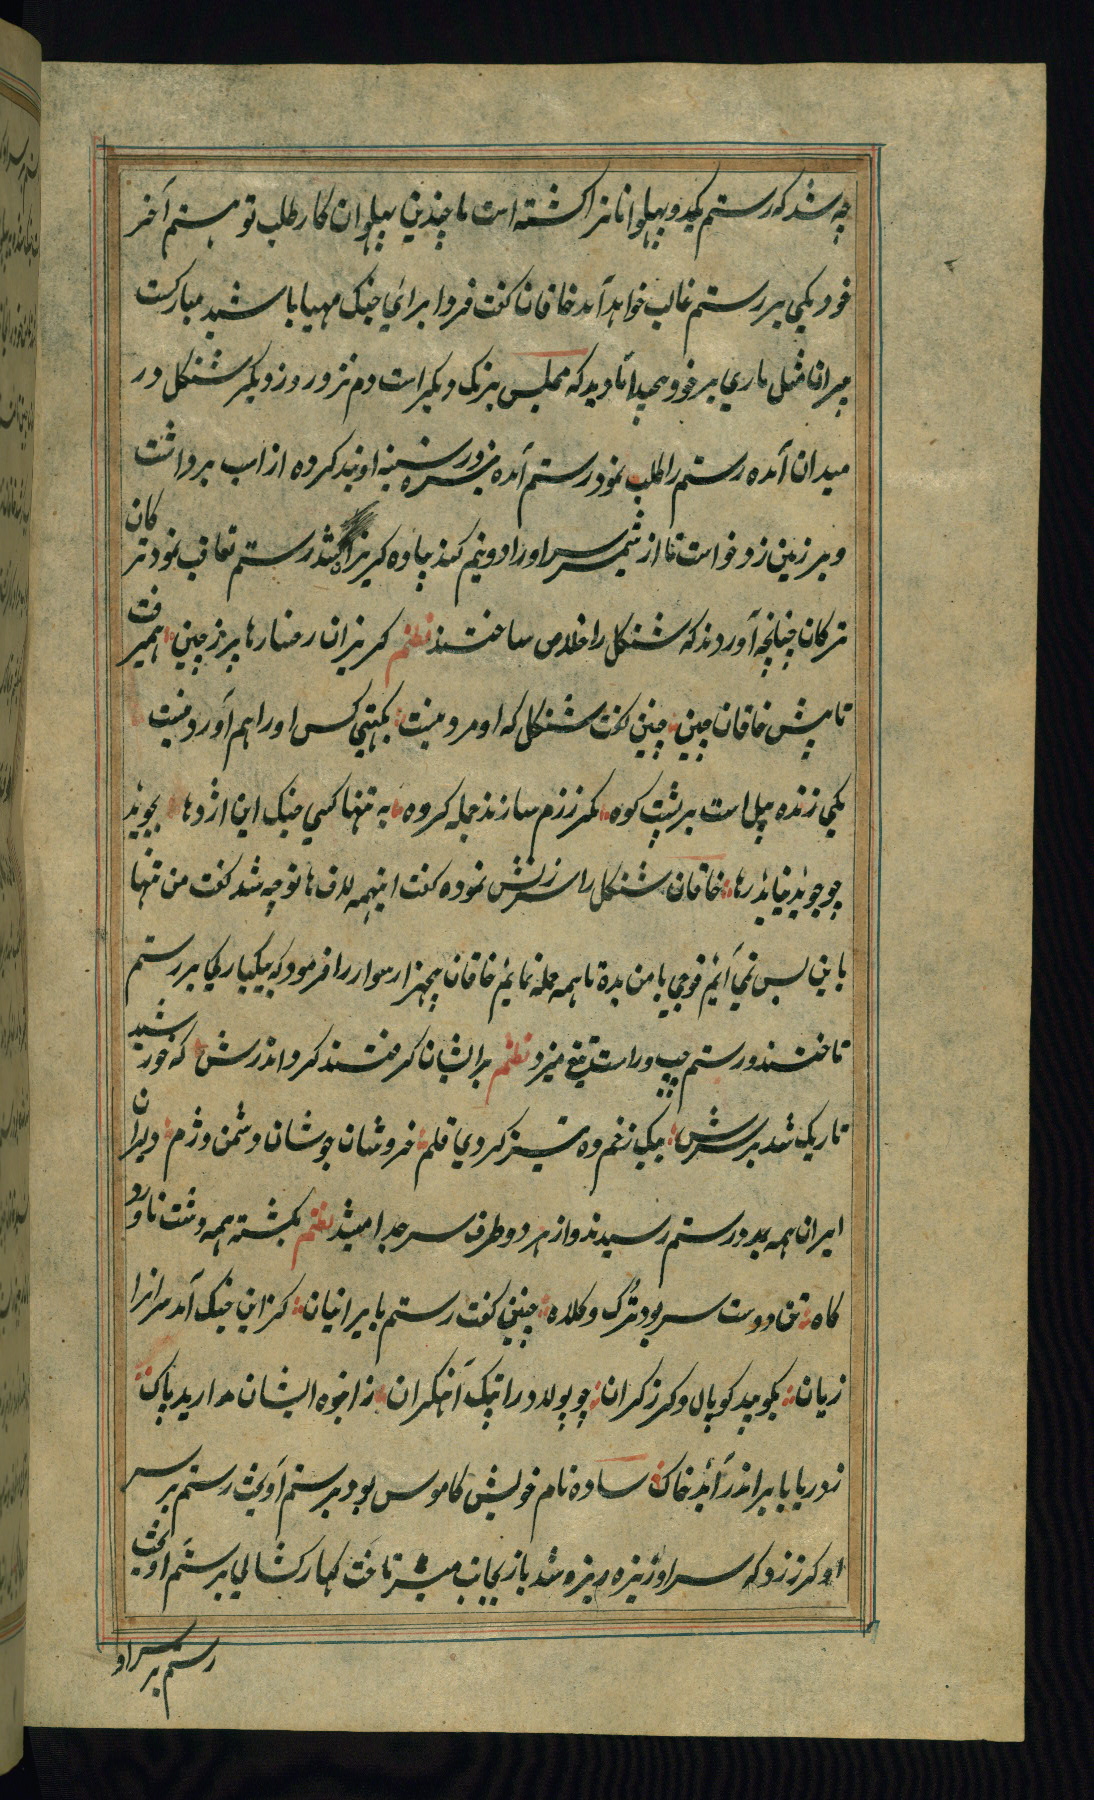 چه شد که رستم یکدو پهلوانانرا کشته است ما چندین پهلوان کارطلب تو هستم آخر
خود یکی بر رستم غالب خواهد آمد خاقان گفت فردا برای جنگ مهیا باشید مبارکت
پیران مثل ماری بر خود پیچید تا دید که مجلس برنگ دیگر است دم نزد روز دیگر شنگل در
میدان آمده رستم را طلب نمود رستم آمده نیزه در سینه او بند کرده از اسب برداشت
و بر زمین زد خواست تا از شمشیر او را دونیم کند پیاده گریزان شد رستم تعاقب نمود ترکان
ترکان چنانچه آوردند که شنگل را خلاص ساختند نظم گریزان رخسارها پر ز چین همیرفت
تا پیش خاقان چین چنین گفت شنگل که او مرد نیست بگیتی کس او را هم آورد نیست
یکی زنده پیل است بر پشت کوه مگر رزم سازند جمله گروه به تنها کسی جنگ این اژدها بجوید
چو جوید نیابد رها خاقان شنگل را سرزنش نموده گفت اینهمه لاف ها تو چه شد گفت من تنها
باین بس نمی آیم فوجی با من بده تا همه حمله نمایم خاقان پنجهزار سوار را فرمود که بیکبارگی بر رستم
تاختند و رستم چپ و راست تیغ میزد نظم برایشان گرفتند گرد اندرش که خورشید
تاریک شد بر سرش بیک زخم ده تیز کردی قلم خروشان جوشان و دشمن دژم دلیران
ایران همه بمدد رستم رسیدند و از هر دو طرف سر جدا میشد نظم بکشته همه دشت ناورد
گاه تن و دست سر بود ترک و کلاه چنین گفت رستم بایرانیان کزین جنگ آمد سرانرا
زیان بکوبید کوپال و گرز گران چو پولاد را پتک آهنگران ز انبوه ایشان مدارید باک
ز دریا بابر اندر آید خاک ساده نام خویش کاموس بود برستم آویخت رستم بر سر
او گرز زد که سر او ریزه ریزه شد باز بجانب میسره تاخت گهار کشانی برستم آویخت
رستم بر سر او